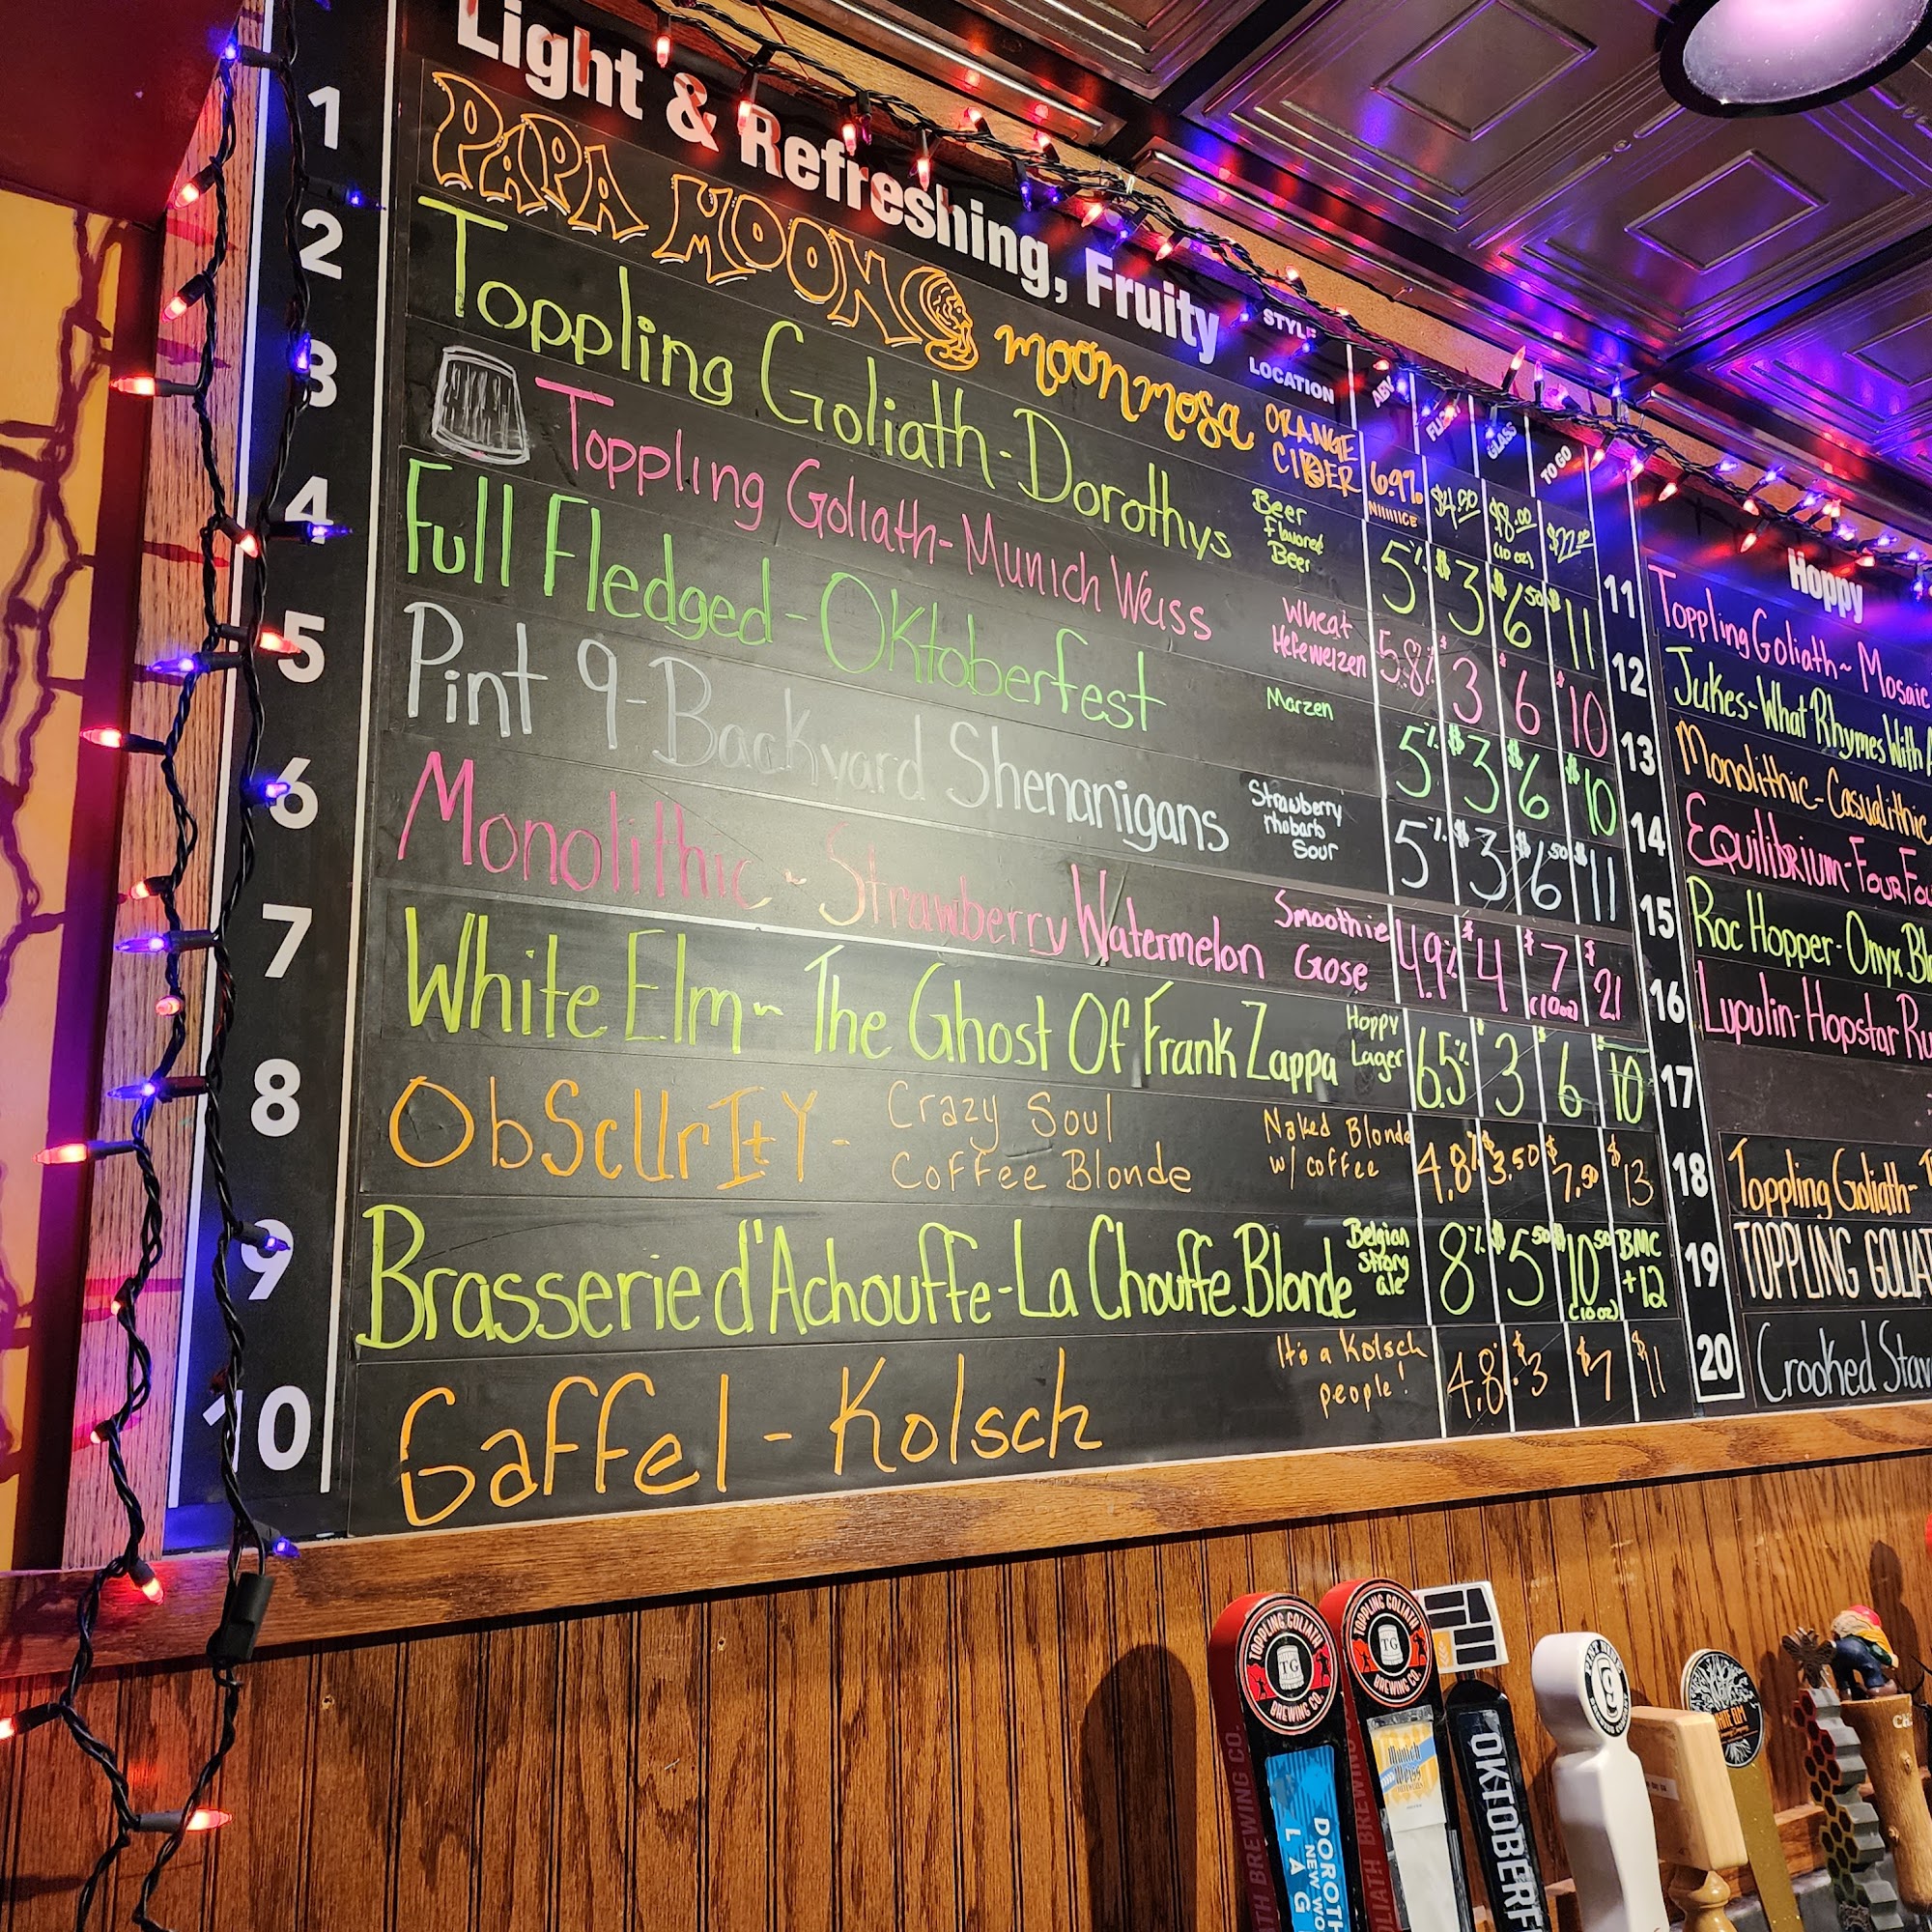 Light & Refreshing, Fruity
STYLE
LOCATION
ABV
FLIGHT
GLASS
TO GO
1
PAPA MOON moonmosa
ORANGE
CIDER
6.9%
NIIIIIICE
$4.00
$8.00
(10 oz)
$22.00
2
Toppling Goliath-Dorothys
Beer
flavored
Beer
5% $3 $6.50 $11
3
Toppling Goliath-Munich Weiss
Wheat
Hefeweizen
5.8% $3 $6 $10
4
Full Fledged-OKtoberfest
Marzen
5% $3 $6 $10
5
Pint 9-Backyard Shenanigans
Strawberry
rhobarb
Sour
5% $3 $6.50 $11
6
Monolithic-Strawberry Watermelon
Smoothie
Gose
4.9% $4 $7 $21
(10oz)
7
White Elm~ The Ghost Of Frank Zappa
Hoppy
Lager
6.5% $3 $6 $10
8
ObScUrItY-
Crazy Soul
Coffee Blonde
Naked Blonde
w/ coffee
4.8% $3.50 $7.50 $13
9
Brasserie d'Achouffe-La Chouffe Blonde
Belgian
Strong
ale
8% $5.50 $10.50
(10oz)
BMC
+12
10
Gaffel-Kolsch
It's a Kolsch
people!
4.8% $3 $7 $11
Hoppy
11
Toppling Goliath~ Mosaic
12
Jukes-What Rhymes With
13
Monolithic-Casualithic
14
Equilibrium-Four
15
Roc Hopper-Onyx
16
Lupulin-Hopstar
17
18
Toppling Goliath-
19
TOPPLING
20
Crooked
TOPPLING GOLIATH
TG
BREWING CO.
TOPPLING GOLIATH
TG
BREWING CO.
BREWING CO.
DOROTH
NEW WO
LAG
Munich
Weiss
OKTOBERF
9